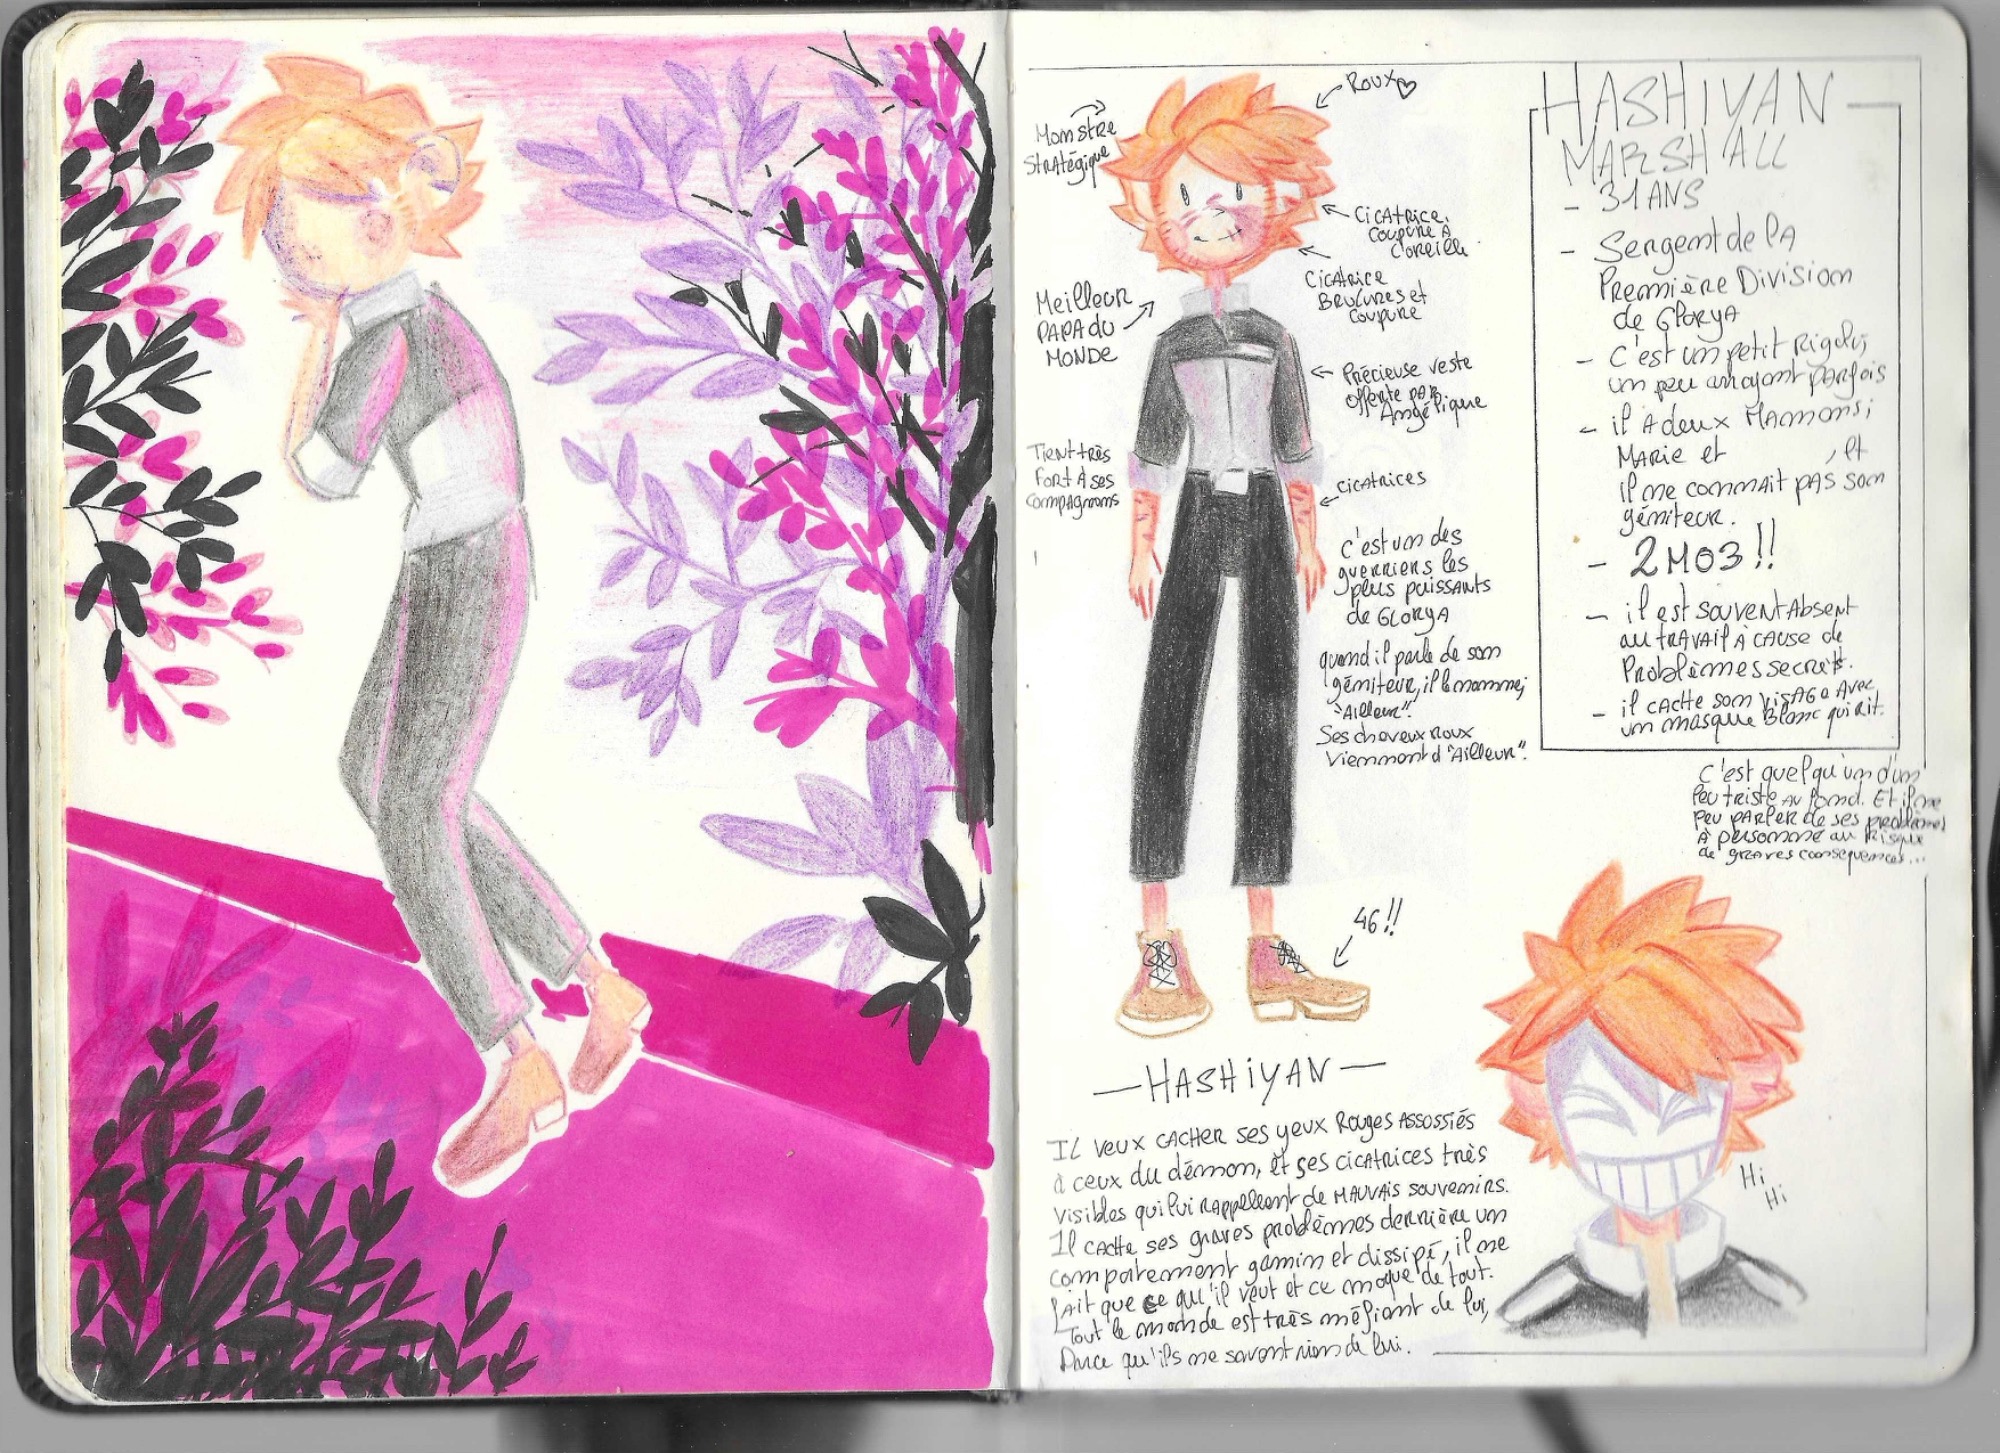 Roux ♡
Monstre
Stratégique
Cicatrice.
Coupure à
l'oreille
Cicatrice
Brulures et
coupure
Meilleur
PAPA du
MONDE
Précieuse veste
offerte par
Angélique
Tient très
Fort à ses
compagnons
cicatrices
c'est un des
guerriers les
plus puissants
de GLORYA
quand il parle de son
géniteur, il le nomme;
"Ailleur".
Ses cheveux roux
viennent d'"Ailleur".
46!!
HASHIYAN
MARSHALL
- 31 ANS
- Sergent de la
Première Division
de Glorya
- C'est un petit rigolo,
un peu arrogant parfois
- il A deux Mamans;
MARIE et , et
il ne connait pas son
géniteur.
- 2M03!!
- il est souvent Absent
au travail à cause de
Problèmes secrets.
- il cache son visage Avec
un masque Blanc qui rit.
C'est quelqu'un d'un
peu triste au fond. Et il ne
peu parler de ses problèmes
à personne au risque
de graves consequences...
— HASHIYAN —
Il veux cacher ses yeux Rouges assossiés
à ceux du démon, et ses cicatrices très
visibles qui lui rappellent de MAUVAIS souvenirs.
Il cache ses graves problèmes derrière un
comportement gamin et dissipé, il ne
fait que ce qu'il veut et ce moque de tout.
Tout le monde est très méfiant de lui,
Parce qu'ils ne savent rien de lui.
Hi
Hi